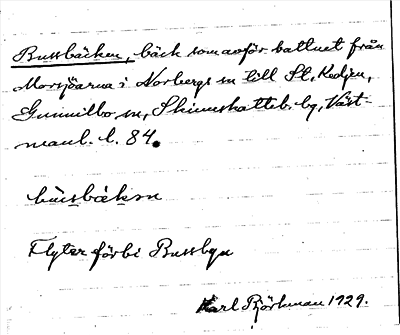 Bussbäcken, bäck som avför vattnet från
Morsjöarna i Norbergs sn till St. Kedjen,
Gunnilbo sn, Skinnskatteb. bg, Väst-
manl. l. 84.
bùsbäkən
Flyter förbi Bussbyn
Karl Björkman 1929.